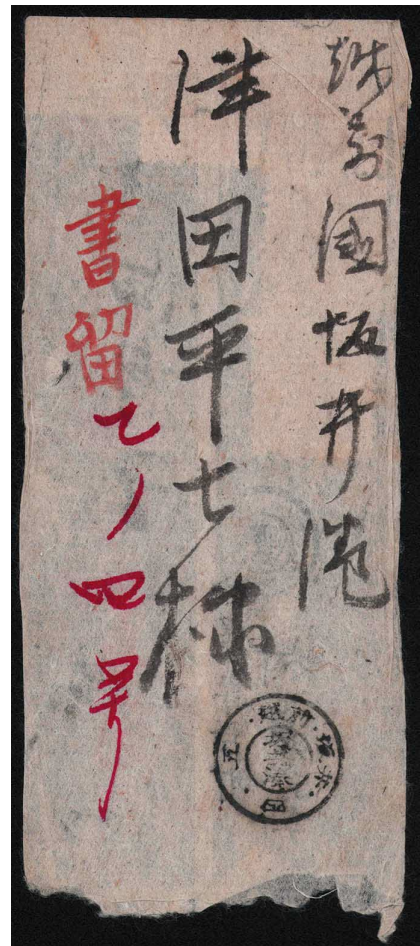 越前國坂井港
津田平七様
書留
乙ノ四号
越前・坂井